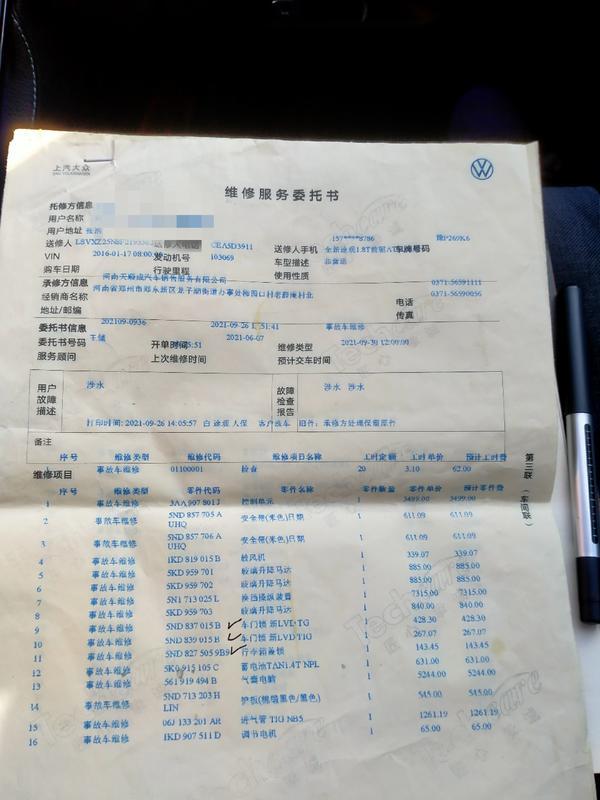 上汽大众
维修服务委托书
托修方信息
用户名称
用户地址
送修人 送修人手机 157****8786 车牌号码 豫P269K6
VIN 2016-01-17 08:00 发动机号 CEA5D3911 车型描述
购车日期 行驶里程 103069 使用性质 非营运
承修方信息
经销商名称 河南天骏成汽车销售服务有限公司 电话 0371-56591111
地址/邮编 传真 0371-56590056
委托书信息
委托书号码 202109-0936 开单时间 2021-09-26 维修类型 事故车维修
服务顾问 上次维修时间 2021-06-07 预计交车时间 2021-09-30 12:00:00
用户故障描述 涉水
故障检查报告 涉水 涉水
打印时间:2021-09-26 14:05:57 旧件:承修方处理保留原件
备注
序号 维修类型 维修代码 维修项目名称 工时定额 工时单价 预计工时费
维修项目
1 事故车维修 01100001 检查 20 3.10 62.00
序号 维修类型 零件代码 零件名称 零件数量 零件单价 预计零件费
1 事故车维修 3AA 907 801 J 控制单元 1 3499.00 3499.00
2 事故车维修 5ND 857 705 A UHQ 安全带(米色)日期 1 611.09 611.09
3 事故车维修 5ND 857 706 A UHQ 安全带(米色)日期 1 611.09 611.09
4 事故车维修 1KD 819 015 B 鼓风机 1 339.07 339.07
5 事故车维修 5KD 959 701 玻璃升降马达 1 885.00 885.00
6 事故车维修 5KD 959 702 玻璃升降马达 1 885.00 885.00
7 事故车维修 5N1 713 025 L 换挡操纵装置 1 7315.00 7315.00
8 事故车维修 5KD 959 703 玻璃升降马达 1 840.00 840.00
9 事故车维修 5ND 837 015 B 车门锁 新LVD TG 1 428.30 428.30
10 事故车维修 5ND 839 015 B 车门锁 新LVD TIG 1 267.07 267.07
11 事故车维修 5ND 827 505 9B9 行李箱盖锁 1 143.45 143.45
12 事故车维修 5K0 915 105 C 蓄电池TAN1.4T NPL 1 631.00 631.00
13 事故车维修 561 919 494 B 气囊电脑 1 5244.00 5244.00
14 事故车维修 5ND 713 203 H LIN 护板(缎缩黑色/黑色) 1 545.00 545.00
15 事故车维修 06J 133 201 AR 进气管 TIG NB5 1 1261.19 1261.19
16 事故车维修 1KD 907 511 D 调节电机 1 65.00 65.00
第三联（车间联）